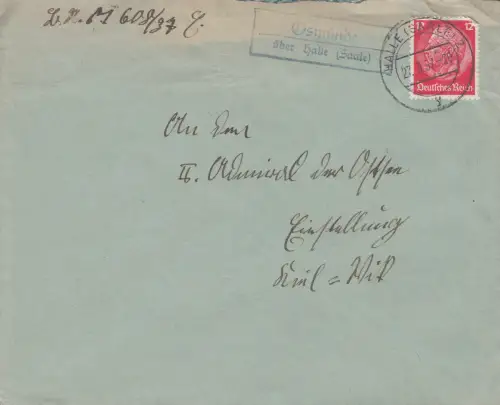 B. N. II 608/37 E.
Osmünde
über Halle (Saale)
HALLE (SAALE)
12
Deutsches Reich
An den
II. Admiral der Ostsee
Einstellung
Kiel = Wik